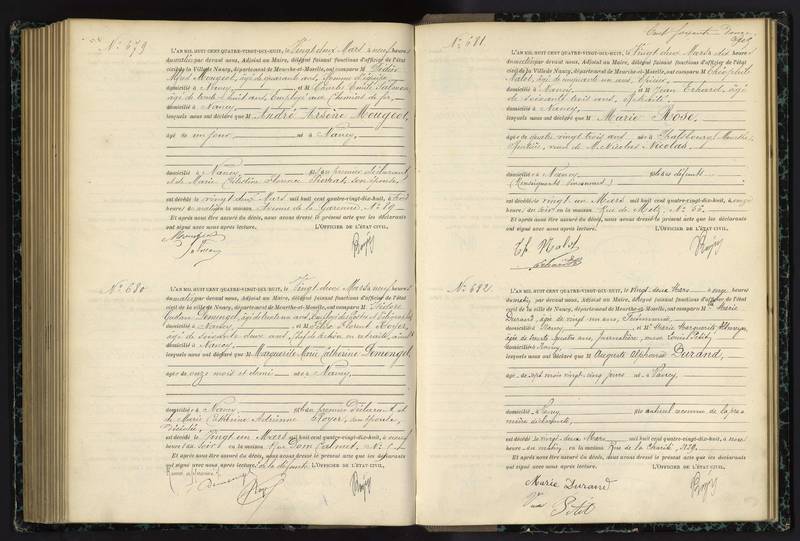 N° 679
L'AN MIL HUIT CENT QUATRE-VINGT-DIX-HUIT, le Vingt deux Mars à neuf heures
du matin par devant nous, Adjoint au Maire, délégué faisant fonctions d'officier de l'état
civil de la Ville de Nancy, département de Meurthe-et-Moselle, ont comparu M
Mougeot, âgé de quarante ans,
domicilié à Nancy, et M Charles Emile Salmon
âgé de trente huit ans, Employé aux Chemins de fer,
domicilié à Nancy
lesquels nous ont déclaré que M André Arsène Mougeot,
âgé de un jour né à Nancy,
domicilié à Nancy, fils du premier déclarant
et de Marie Florence son épouse,
est décédé le vingt deux Mars mil huit cent quatre-vingt-dix-huit, à
heures du matin en la maison de la Garenne, N° 89
Et après nous être assuré du décès, nous avons dressé le présent acte que les déclarants
ont signé avec nous après lecture. L'OFFICIER DE L'ÉTAT CIVIL,
Mougeot
Salmon
N° 680
L'AN MIL HUIT CENT QUATRE-VINGT-DIX-HUIT, le Vingt deux Mars à neuf heures
du matin par devant nous, Adjoint au Maire, délégué faisant fonctions d'officier de l'état
civil de la ville de Nancy, département de Meurthe-et-Moselle, ont comparu M
Demengel, âgé de trente un ans, Employé des Postes et Télégraphes
domicilié à Nancy et M Florent Royer,
âgé de soixante deux ans, en retraite,
domicilié à Nancy
lesquels nous ont déclaré que M Marguerite Marie Catherine Demengel,
âgée de onze mois et demi née à Nancy,
domiciliée à Nancy fille du premier déclarant et
de Marie Catherine Adrienne Royer, son épouse,
décédée,
est décédé le Vingt un Mars mil huit cent quatre-vingt-dix-huit, à neuf
heures du soir en la maison Rue Dom Calmet, N°
Et après nous être assuré du décès, nous avons dressé le présent acte que les déclarants
ont signé avec nous après lecture. L'OFFICIER DE L'ÉTAT CIVIL,
Demengel
N° 681.
L'AN MIL HUIT CENT QUATRE-VINGT-DIX-HUIT, le Vingt deux Mars à dix heures
du matin par devant nous, Adjoint au Maire, délégué faisant fonctions d'officier de l'état
civil de la Ville de Nancy, département de Meurthe-et-Moselle, ont comparu M Théophile
Malot, âgé de cinquante un ans,
domicilié à Nancy, et M Jean Erhard, âgé
de soixante trois ans, Retraité
domicilié à Nancy,
lesquels nous ont déclaré que M Marie Rose,
âgée de quatre vingt trois ans née à Phalsbourg Meurthe
veuve de M. Nicolas Nicolas
domiciliée à Nancy fille des défunts
(Renseignements inconnus)
est décédé le vingt un Mars mil huit cent quatre-vingt-dix-huit, à onze
heures du soir en la maison Rue de Metz, N° 55
Et après nous être assuré du décès, nous avons dressé le présent acte que les déclarants
ont signé avec nous après lecture. L'OFFICIER DE L'ÉTAT CIVIL,
Th Malot
N° 682.
L'AN MIL HUIT CENT QUATRE-VINGT-DIX-HUIT, le vingt deux Mars à onze heures
du matin par devant nous, Adjoint au Maire, délégué faisant fonctions d'officier de l'état
civil de la ville de Nancy, département de Meurthe-et-Moselle, ont comparu M Marie
Durand, âgée de vingt un ans,
domiciliée à Nancy et M Marie Marguerite
âgée de trente quatre ans, journalière, veuve Petit
domiciliée à Nancy,
lesquels nous ont déclaré que M Auguste Alphonse Durand,
âgé de sept mois vingt-cinq jours né à Nancy,
domicilié à Nancy, fils naturel reconnu de la première
déclarante,
est décédé le vingt-deux Mars mil huit cent quatre-vingt-dix-huit, à
heures du matin en la maison Rue de la Charité
Et après nous être assuré du décès, nous avons dressé le présent acte que les déclarants
ont signé avec nous après lecture. L'OFFICIER DE L'ÉTAT CIVIL,
Marie Durand
Petit